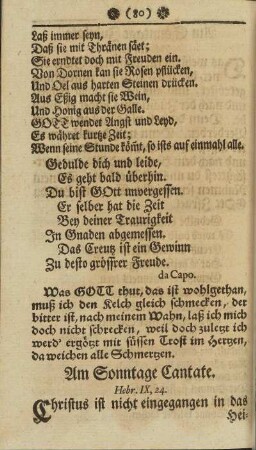 (80)
Laß immer seyn,
Daß sie mit Thränen säet;
Sie erndtet doch mit Freuden ein.
Von Dornen kan sie Rosen pflücken,
Und Oel aus harten Steinen drücken.
Aus Eßig macht sie Wein,
Und Honig aus der Galle.
GOTT wendet Angst und Leyd,
Es währet kurtze Zeit;
Wenn seine Stunde kömt, so ists auf einmahl alle.
Gedulde dich und leide,
Es geht bald überhin.
Du bist GOtt unvergessen.
Er selber hat die Zeit
Bey deiner Traurigkeit
In Gnaden abgemessen.
Das Creutz ist ein Gewinn
Zu desto grösrer Freude.
da Capo.
Was GOTT thut, das ist wohlgethan,
muß ich den Kelch gleich schmecken, der
bitter ist, nach meinem Wahn, laß ich mich
doch nicht schrecken, weil doch zuletzt ich
werd' ergötzt mit süssen Trost im Hertzen,
da weichen alle Schmertzen.
Am Sonntage Cantate.
Hebr. IX, 24.
Christus ist nicht eingegangen in das
Hei-